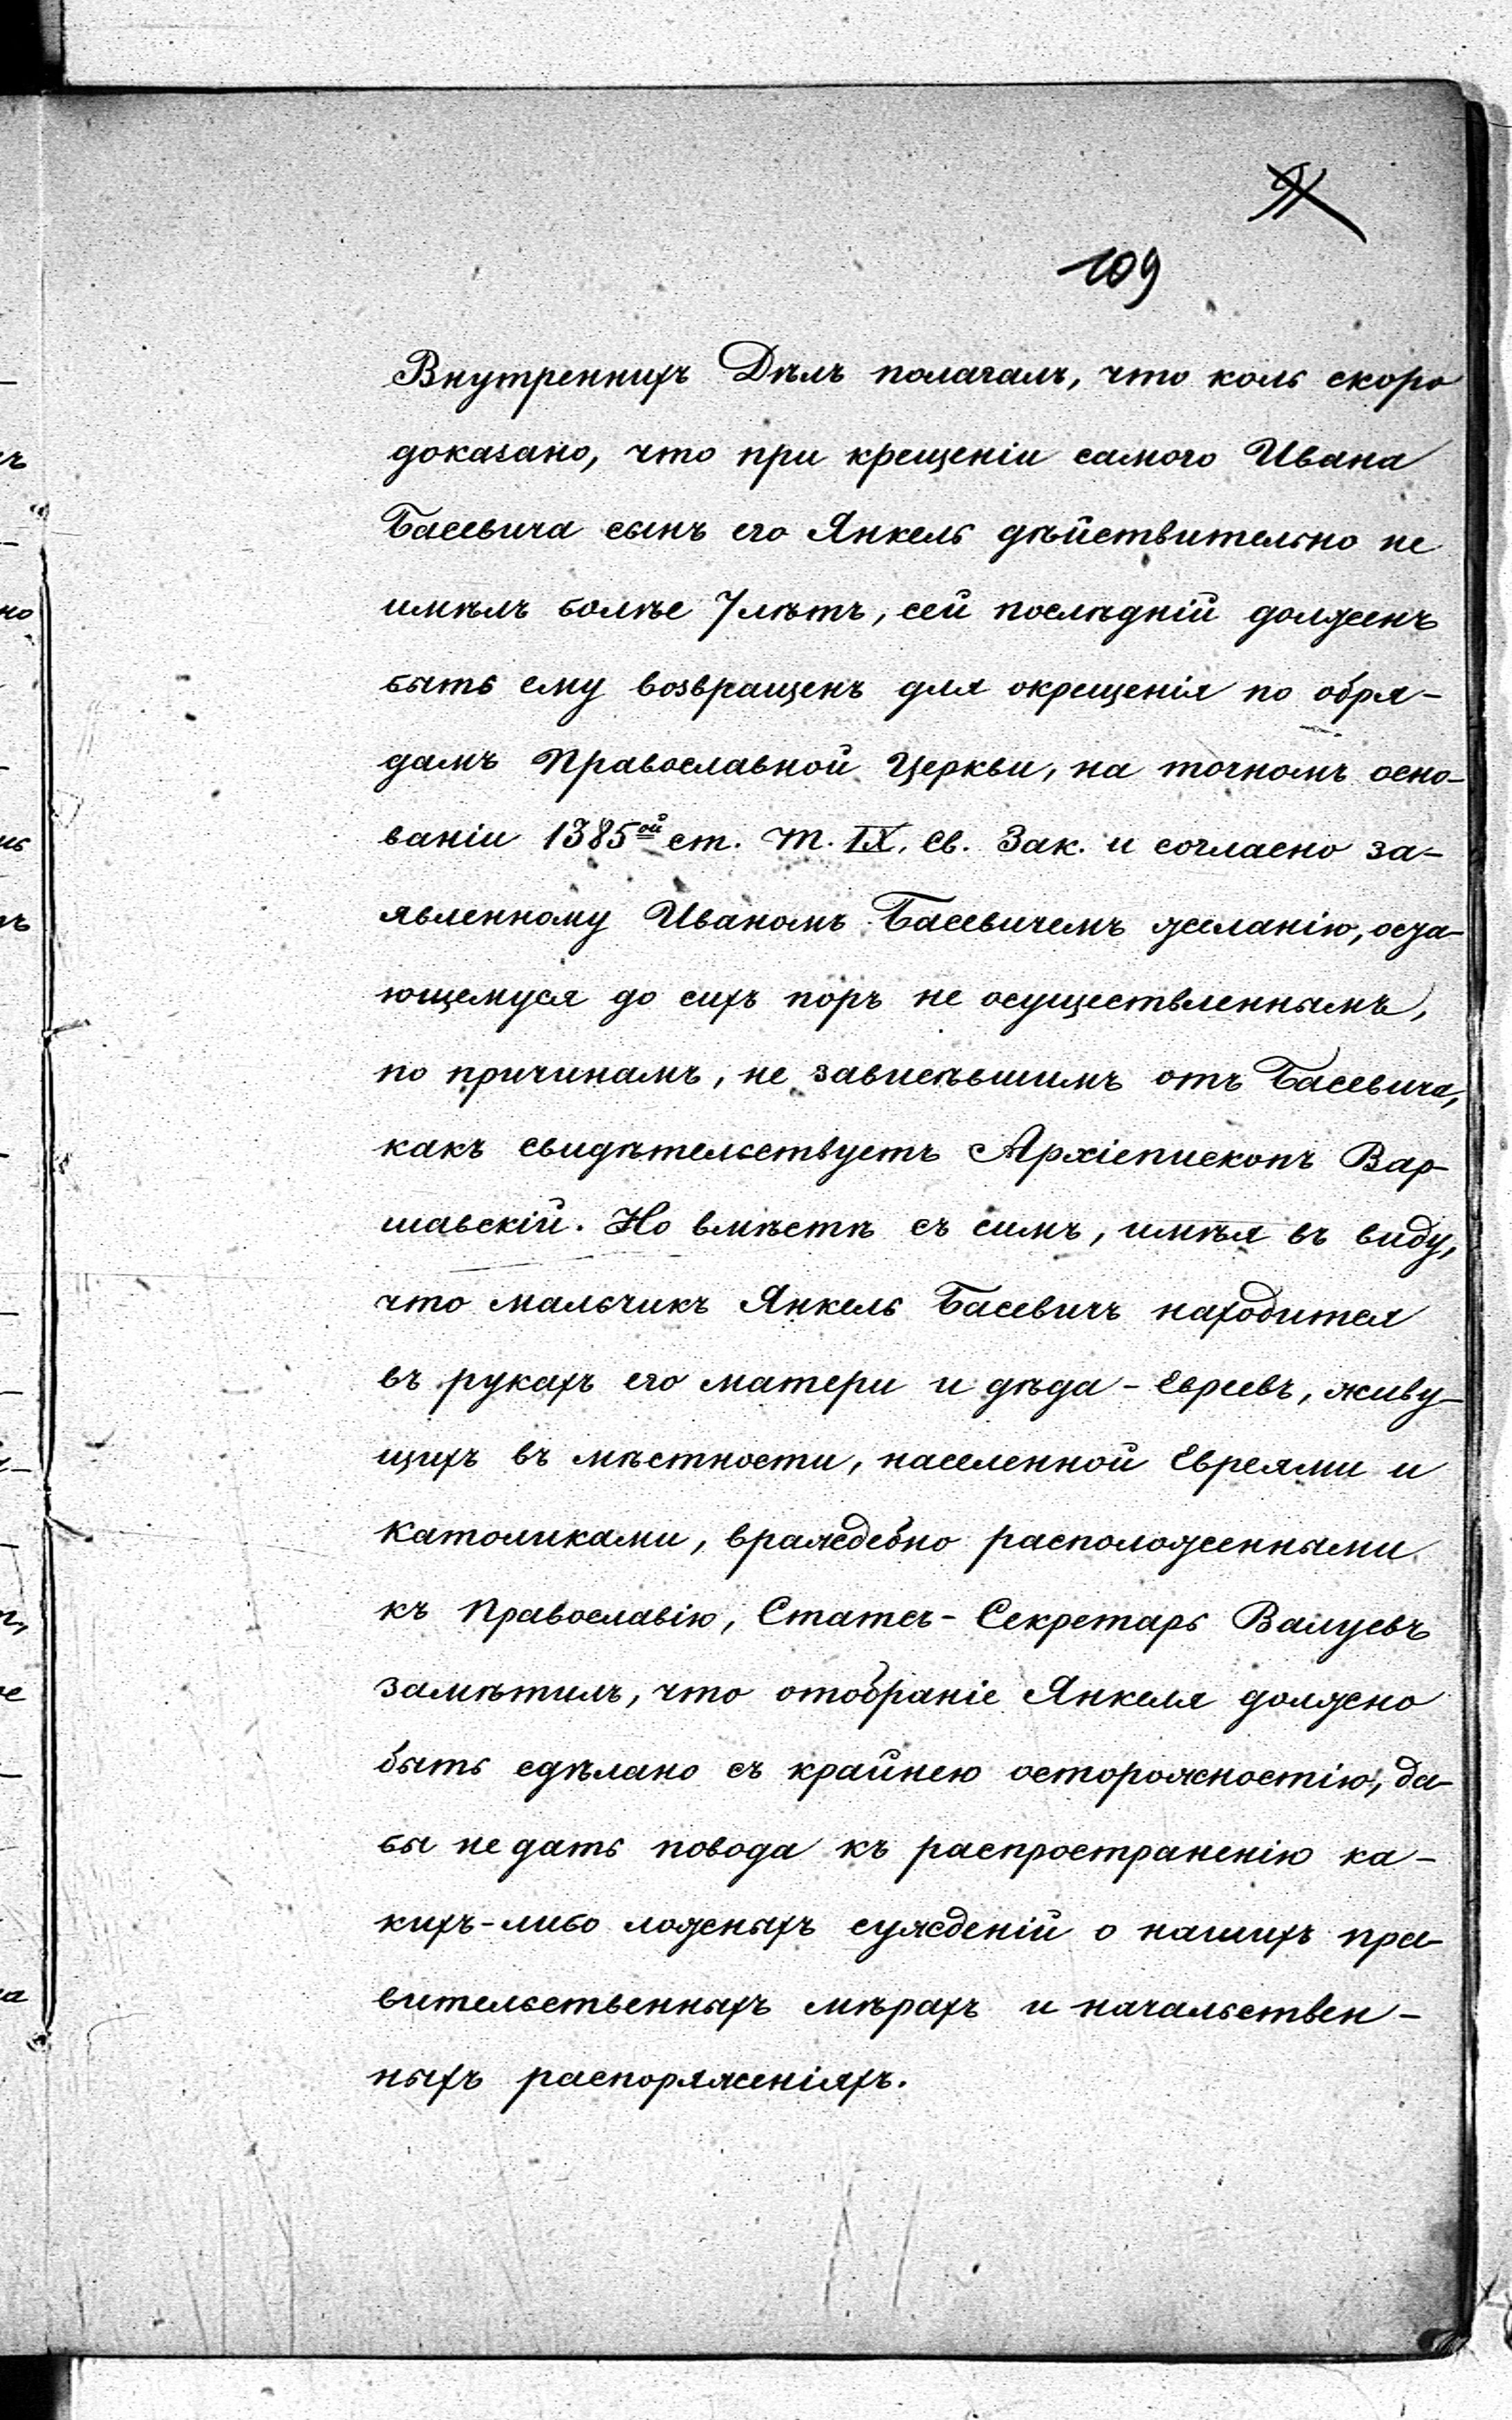 109
Внутреннихъ Дѣлъ полагалъ, что коль скоро
доказано, что при крещеніи самого Ивана
Басевича сынъ его Янкель дѣйствительно не
имѣлъ болѣе 7 лѣтъ, сей послѣдній долженъ
быть ему возвращенъ для окрещенія по обря-
дамъ Православной Церкви, на точномъ осно-
ваніи 1385ой ст. Т. IX. Св. Зак. и согласно за-
явленному Иваномъ Басевичемъ желанію, оста-
ющемуся до сихъ поръ не осуществленнымъ,
по причинамъ, не зависѣвшимъ отъ Басевича,
какъ свидѣтельствуетъ Архіепископъ Вар-
шавскій. Но вмѣстѣ съ симъ, имѣя въ виду,
что мальчикъ Янкель Басевичъ находится
въ рукахъ его матери и дѣда - Евреевъ, живу-
щихъ въ мѣстности, населенной Евреями и
Католиками, враждебно расположенными
къ Православію, Статсъ-Секретарь Валуевъ
замѣтилъ, что отобраніе Янкеля должно
быть сдѣлано съ крайнею осторожностію, да-
бы не дать повода къ распространенію ка-
кихъ-либо ложныхъ сужденій о нашихъ пра-
вительственныхъ мѣрахъ и начальствен-
ныхъ распоряженіяхъ.